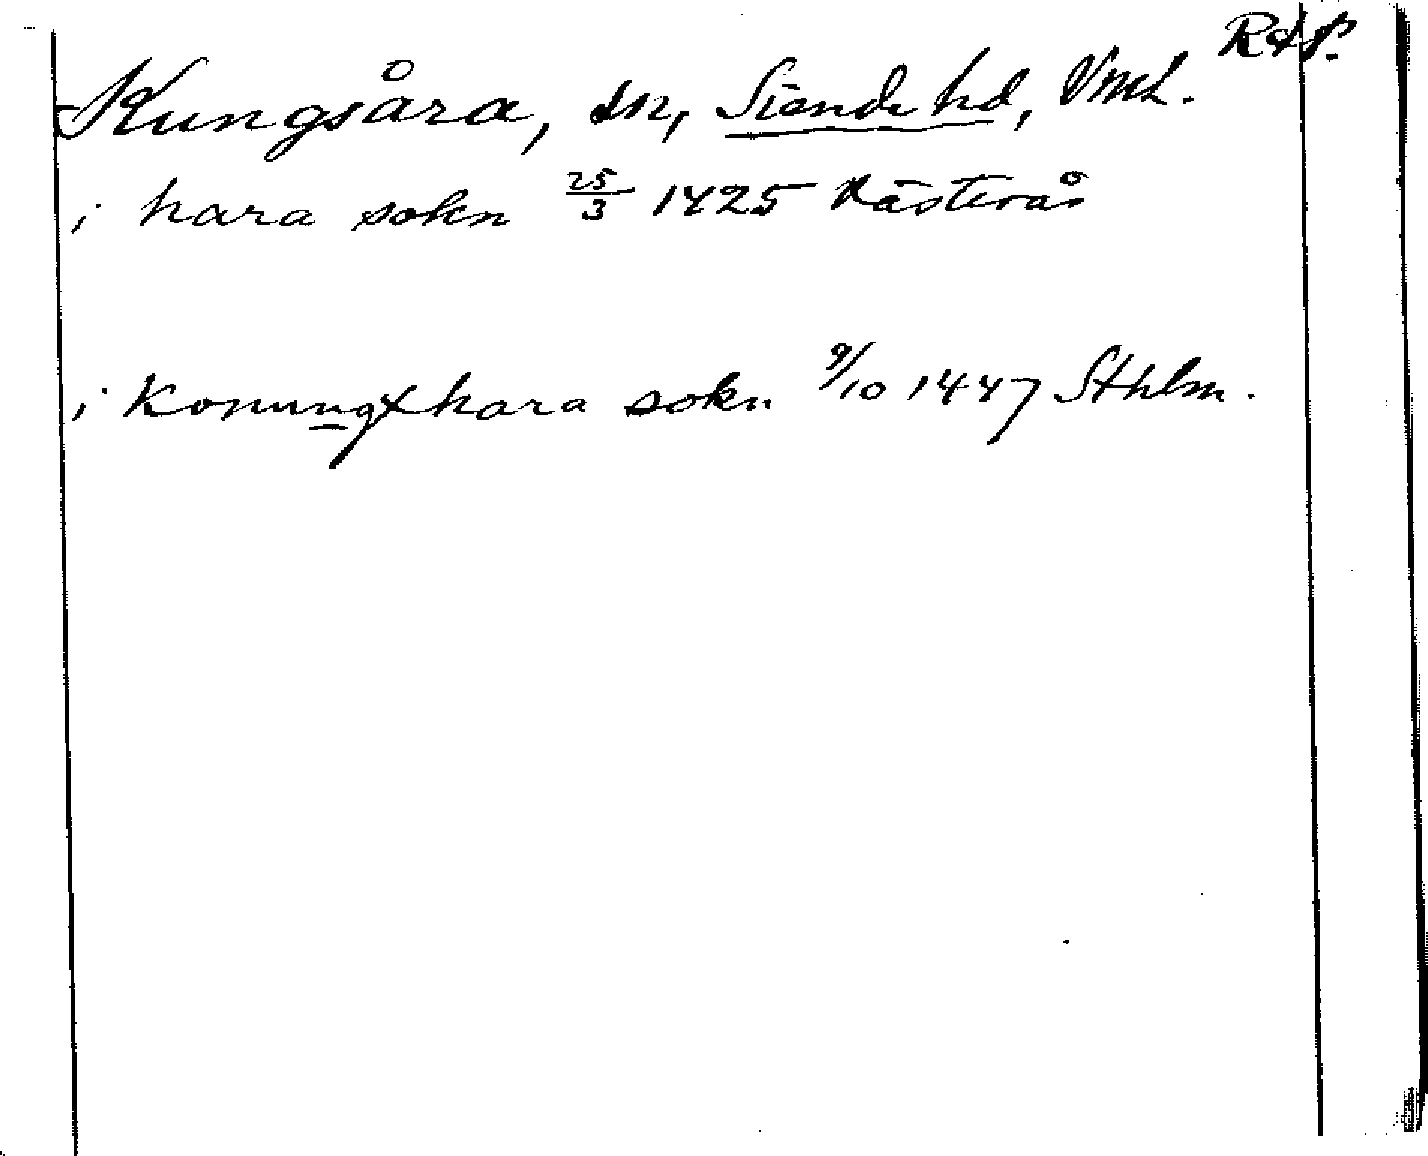 RAp.
Kungsåra, sn, Siende hd, Vml.
i hara sokn 25/3 1425 Västerås
i konungxhara sokn 9/10 1447 Sthlm.